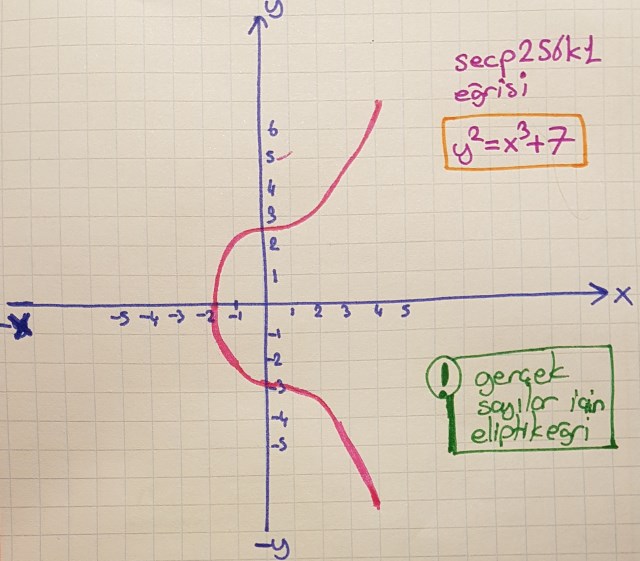 y
secp256k1
eğrisi
y²=x³+7
6
5
4
3
2
1
-5 -4 -3 -2 -1 1 2 3 4 5 x
-x
-1
-2
-3
-4
-5
! gerçek
sayılar için
eliptik eğri
-y